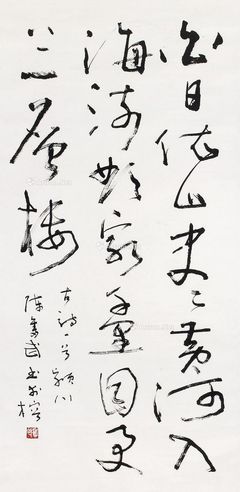 白日依山尽黄河入
海流欲穷千里目更
上一层楼
古诗一首颖川
陈奋武书于榕